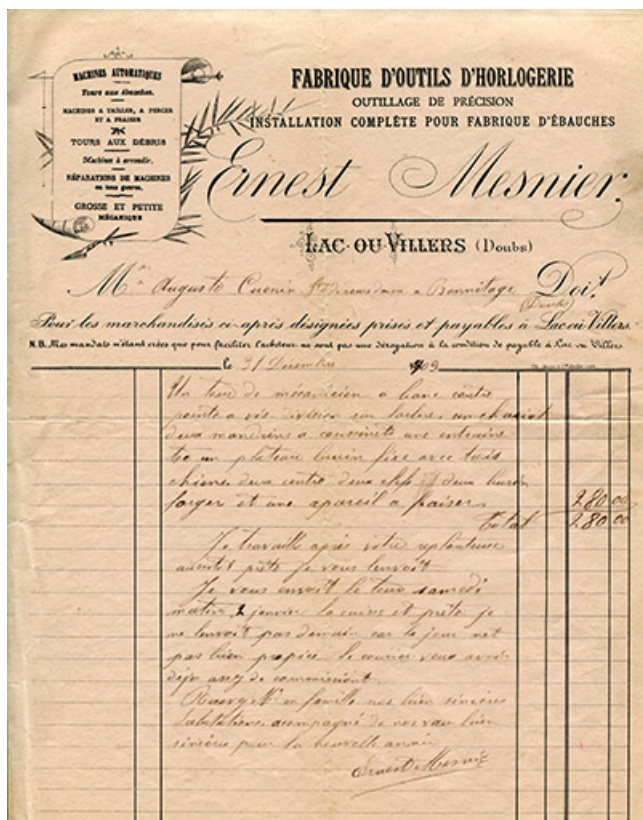 MACHINES AUTOMATIQUES
Tours aux ébauches.
MACHINES A TAILLER, A PERCER
ET A FRAISER
TOURS AUX DÉBRIS
Machines à arrondir.
RÉPARATIONS DE MACHINES
en tous genres.
GROSSE ET PETITE
MÉCANIQUE
FABRIQUE D'OUTILS D'HORLOGERIE
OUTILLAGE DE PRÉCISION
INSTALLATION COMPLÈTE POUR FABRIQUE D'ÉBAUCHES
Ernest Mesnier.
LAC-OU-VILLERS (Doubs)
M Auguste Cuenin a Bonnétage Doit
(Doubs)
Pour les marchandises ci-après désignées prises et payables à Lac-ou-Villers.
N.B. Mes mandats n'étant créés que pour faciliter l'acheteur ne sont pas une dérogation à la condition de payable à Lac-ou-Villers
le 31 Décembre 1909
Un tour de mécanicien a banc contre
pointe a vis division sur un chariot
deux mandrins a coussinets une
un plateau burin fixe avec trois
chiens deux deux clefs et deux burin
forger et une apareil a fraiser 280.00
Total 280.00
Je travaill après votre replanteuse
aussitôt prête Je vous lenvoit
Je vous envoit le tour samedi
matin 2 janvier la caisse et prête je
ne lenvoit pas demain car le jour net
pas bien propice le courier veux avoir
déja assez de commissiont
M. en famille nos bien sincères
Salutations acompagné de nos vœu bien
sincères pour la nouvelle année
Ernest Mesnier